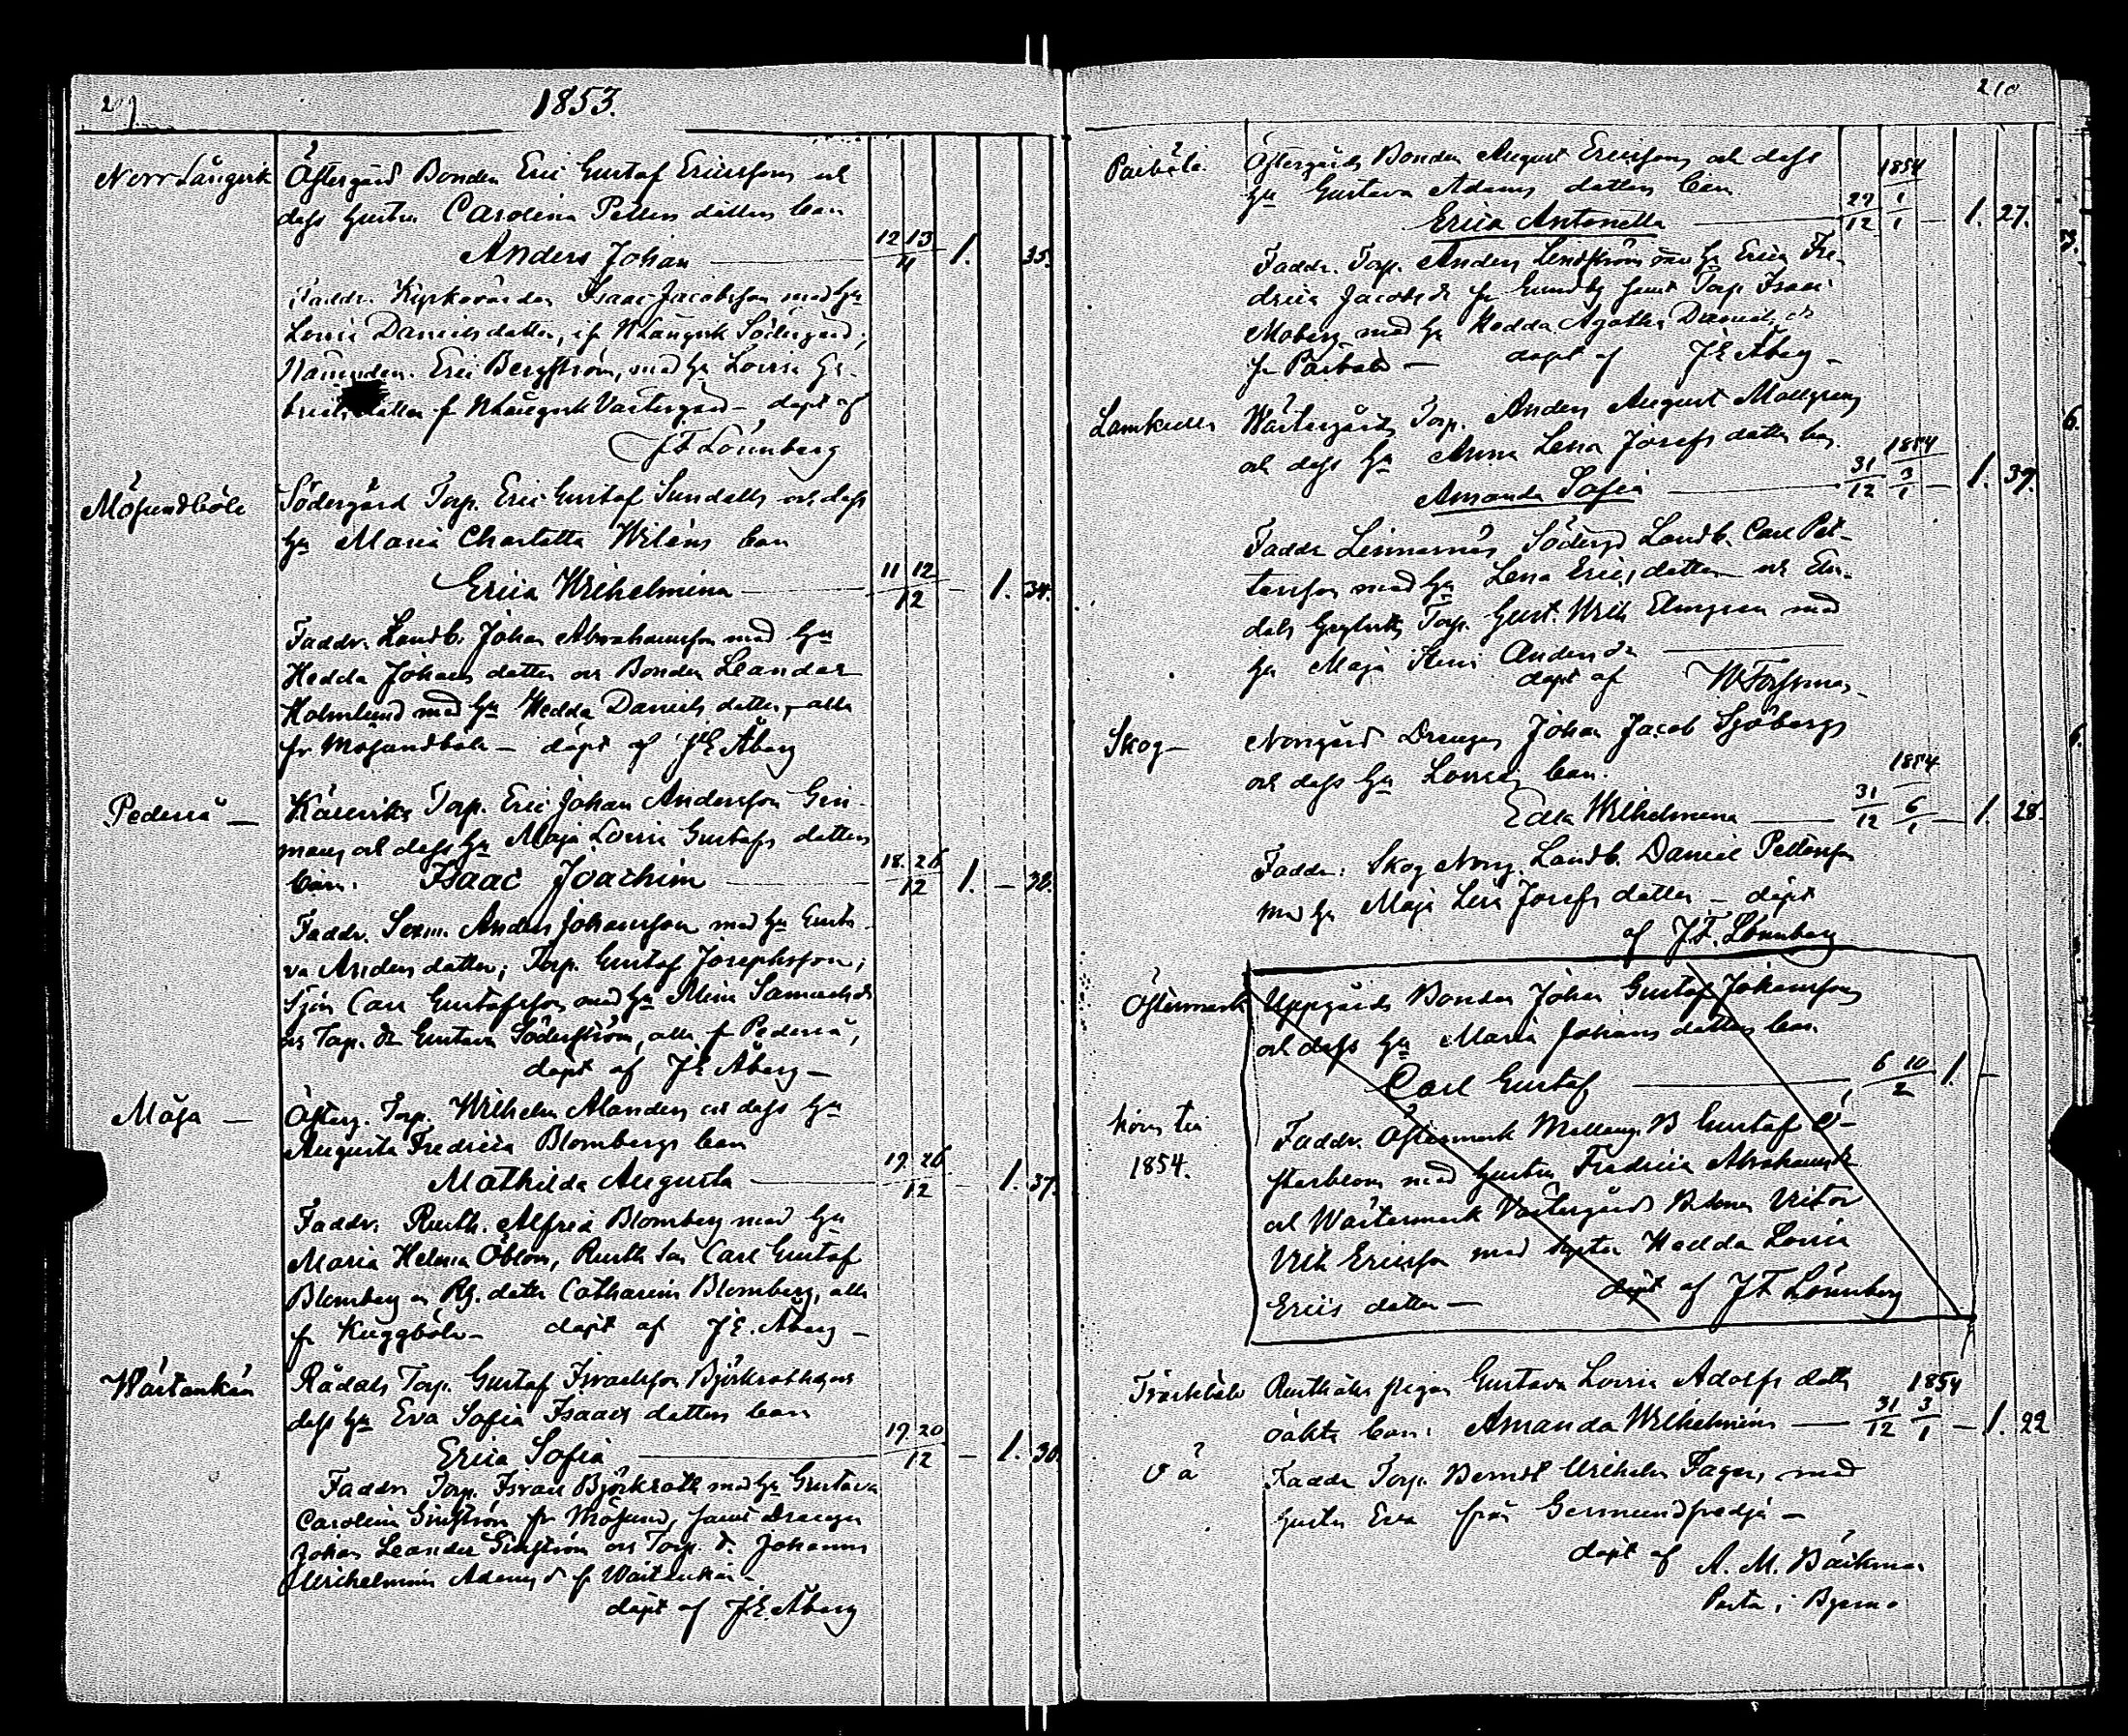 1853.
Norr Långvik
Östergård Bonden Eric Gustaf Ericssons och
dess hustru Carolina Petters dotters barn
Anders Johan 12 13 / 11 1. 35.
Faddr. Kyrkovärden Isaac Jacobsson med hu
Lovisa Danielsdotter, ifr NLångvik Södergård;
Nämnden. Eric Bergström, med hu Lovisa Ga-
briels dotter fr NLångvik Västergård — döpt af
J F Lönnberg
Mösundböle
Södergård Torp. Eric Gustaf Sundells och dess
hu Maria Charlotta Wiléns barn
Erica Wilhelmina 11 12 / 12 — 1. 34.
Faddr. Landb. Johan Abrahamsson med hu
Hedda Johans dotter och Bonden Leander
Holmlund med hu Hedda Daniels dotter, alla
fr Mösundböle — döpt af J E Åberg
Pederså —
Torp. Eric Johan Andersson Gin-
mans och dess hu Maja Lovisa Gustafs dotters
barn. Isaac Joachim 18. 26 / 12 1. — 38.
Faddr. Sexm. Anders Johansson med hu Gusta-
va Anders dotter; Torp. Gustaf Josephsson;
Sjön Carl Gustafsson med hu Mina Samuelsdr
och Torp. dr Gustava Söderström, alla fr Pederså,
döpt af J E Åberg —
Måsa —
Österg. Torp. Wilhelm Alanders och dess hu
Augusta Fredrica Blombergs barn
Mathilda Augusta 19. 26 / 12 — 1. 37.
Faddr. Rusth. Alfred Blomberg med hu
Maria Helena Öblom, Rusth son Carl Gustaf
Blomberg o Rh. dotter Catharina Blomberg, alla
fr Kuggböle — döpt af J. E. Åberg —
Wästankärr
Rådals Torp. Gustaf Israelsson Björkroths och
dess hu Eva Sofia Isaacs dotters barn
Erica Sofia 19 20 / 12 — 1. 30.
Faddr. Torp. Israel Björkroth med hu Gustava
Carolina Ginström fr Mösund, samt Drängen
Johan Leander Ginström och Torp. dr Johanna
Wilhelmina Adamsdr fr Wästankärr —
döpt af J. E. Åberg
210
Pärböle
Östergårds Bonden August Ericssons och dess
hu Gustava Adams dotters barn 1854
Erica Antonetta 27 / 12 1 / 1 — 1. 27.
Faddr. Torp. Anders Lindström med hu Erica Fre-
drica Jacobsdr fr Gundby samt Torp. Isaac
Moberg med hu Hedda Agatha Daniels dr
fr Pärböle — döpt af J E Åberg —
Lamkulla
Wästergårds Torp. Anders August Mallgrens
och dess hu Anna Lena Josefs dotters barn 1854
Amanda Sofia 31 / 12 3 / 1 — 1. 39.
Faddr Södergd Landb. Carl Pet-
tersson med hu Lena Erics dotter och Elm-
dals Torp. Gust. Wilh Elmgren med
hu Maja Stina Anders dr
döpt af W Forssman
Skog —
Norrgård Drängen Johan Jacob Sjöbergs
och dess hu Lovisas barn. 1854
Edla Wilhelmina 31 / 12 6 / 1 — 1. 28.
Faddr: Skog Norrg. Landb. Daniel Pettersson
med hu Maja Lisa Josefs dotter — döpt
af J. F. Lönnberg
Östermark
Uppgårds Bonden Johan Gustaf Johanssons
och dess hu Maria Johans dotters barn
Carl Gustaf 6 10 / 2 1. —
hörer till
1854.
Faddr. Östermark Mellang. B Gustaf Ö-
sterblom med hustru Fredrica Abrahamsdr
och Wästermark Västergårds B. sonen Victor
Wilh Ericsson med syster Hedda Lovisa
Erics dotter — döpt af J F Lönnberg
Träskböle
oä
Rusthålls pigan Gustava Lovisa Adolfs dotts 1854
oäkta barn: Amanda Wilhelmina 31 / 12 3 / 1 — 1. 22
Faddr Torp. Berndt Wilhelm Fager, med
hustru Eva från Germundsvedja —
döpt af A. M. Bäckman
Pastor i Bjerno